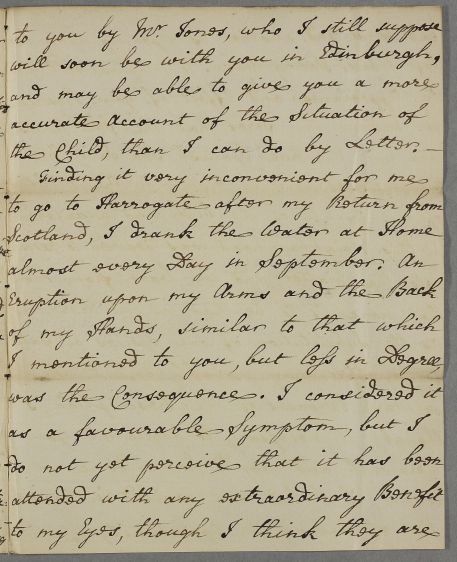 to you by Mr. Jones, who I still suppose
will soon be with you in Edinburgh,
and may be able to give you a more
accurate Account of the Situation of
the Child, than I can do by Letter. —
Finding it very inconvenient for me
to go to Harrogate after my Return from
Scotland, I drank the Water at Home
almost every Day in September. An
Eruption upon my Arms and the Back
of my Hands, similar to that which
I mentioned to you, but less in Degree,
was the Consequence. I considered it
as a favourable Symptom, but I
do not yet perceive that it has been
attended with any extraordinary Benefit
to my Eyes, though I think they are